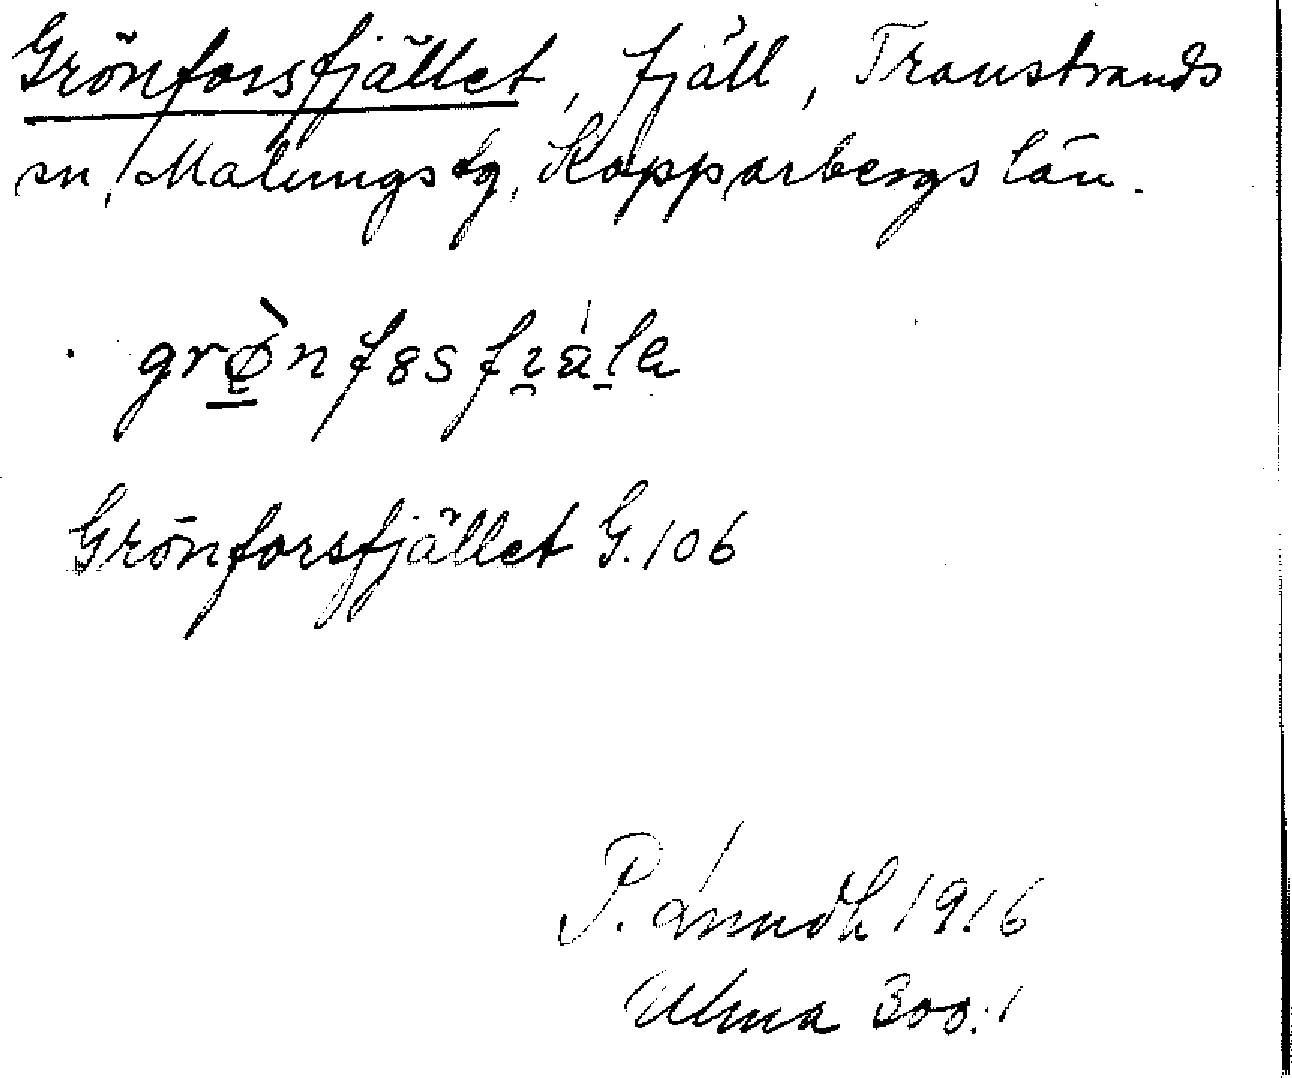 Grönforsfjället, fjäll, Transtrands
sn, Malungs tg, Kopparbergs län.
Grönforsfjället G. 106
P. 1916
Ulma 300:1